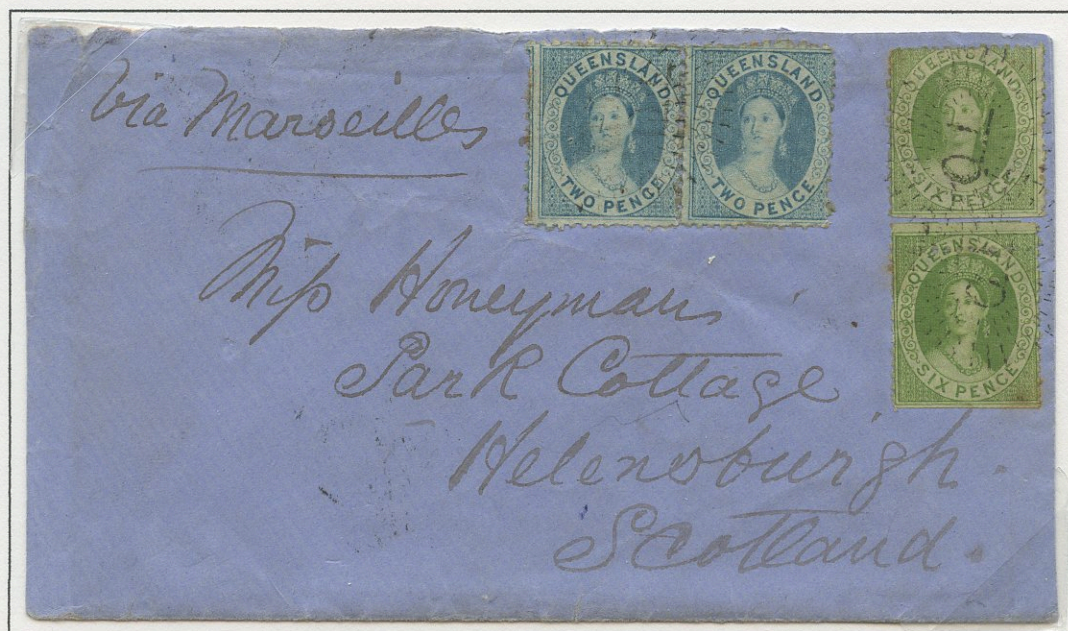 Via Marseilles
QUEENSLAND
TWO PENCE
QUEENSLAND
TWO PENCE
QUEENSLAND
SIX PENCE
QUEENSLAND
SIX PENCE
Miss Honeyman
Park Cottage
Helensburgh.
Scotland.